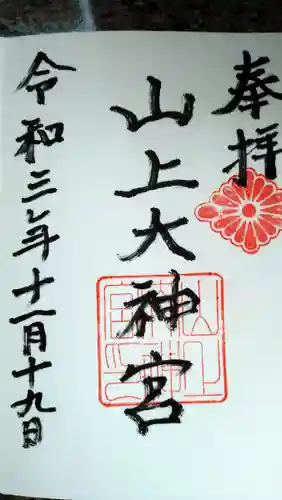 奉拝
山上大神宮
令和三年十一月十九日